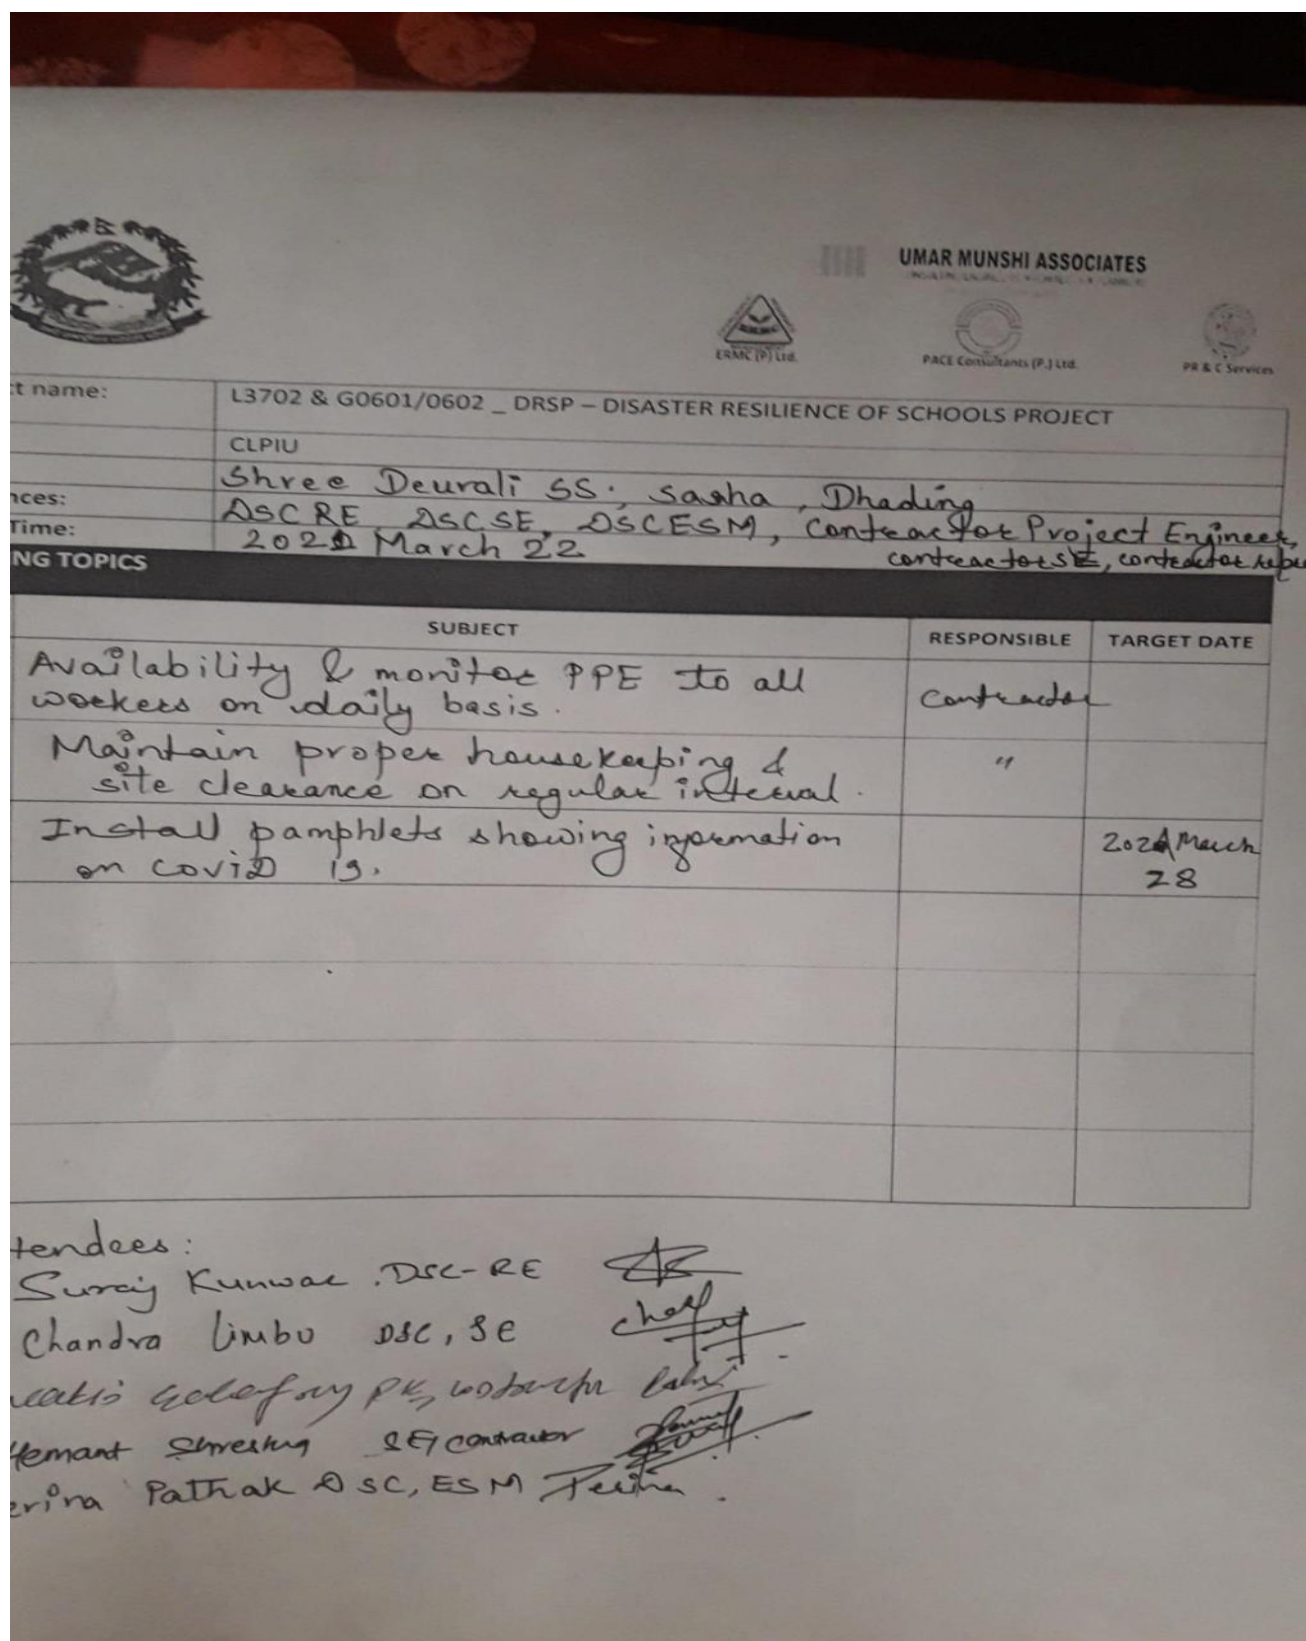 UMAR MUNSHI ASSOCIATES
ERMC (P) Ltd.
PACE Consultants (P.) Ltd.
PR & C Services
ct name: L3702 & G0601/0602 _ DRSP – DISASTER RESILIENCE OF SCHOOLS PROJECT
CLPIU
Shree Deurali SS., Sasha, Dhading
nces: DSC RE, DSC SE, DSC ESM, Contractor Project Engineer,
contractor SE, contractor repre
Time: 2021 March 22
NG TOPICS
SUBJECT RESPONSIBLE TARGET DATE
Availability & monitor PPE to all
workers on daily basis. Contractor
Maintain proper housekeeping & "
site clearance on regular interval.
Install pamphlets showing information 2021 March
on COVID 19. 28
tendees:
Suraj Kunwar. DSC-RE
Chandra Limbu DSC, SE
Hemant Shrestha SE, contractor
erina Pathak DSC, ESM